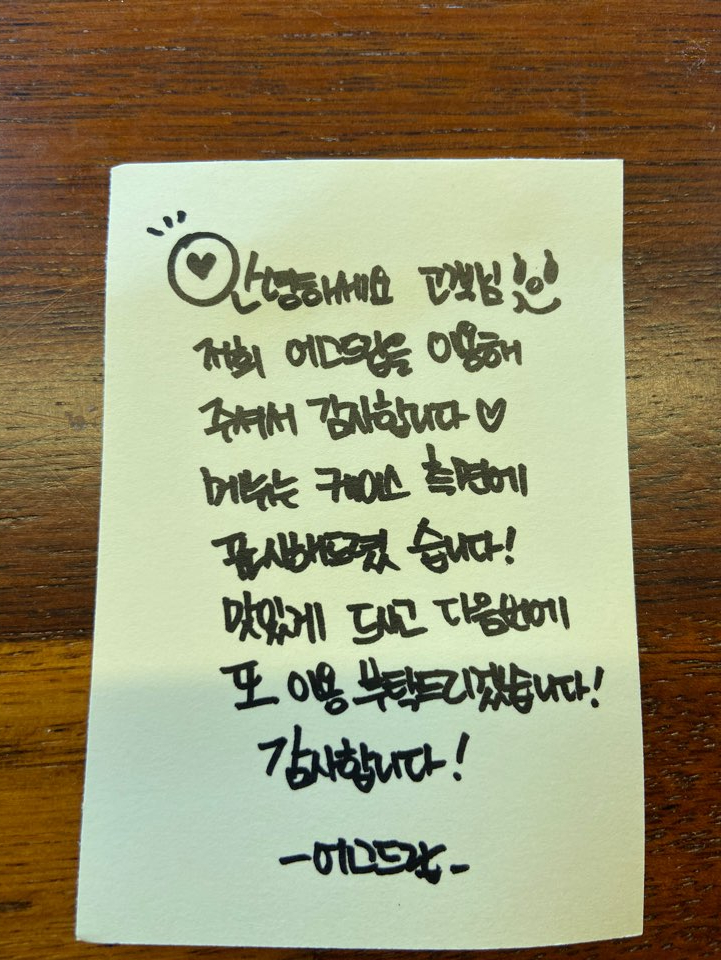 안녕하세요 고객님
저희 에그드랍을 이용해
주셔서 감사합니다♡
메뉴는 케이스 측면에
표시해드렸습니다!
맛있게 드시고 다음번에
또 이용 부탁드리겠습니다!
감사합니다!
-에그드랍-